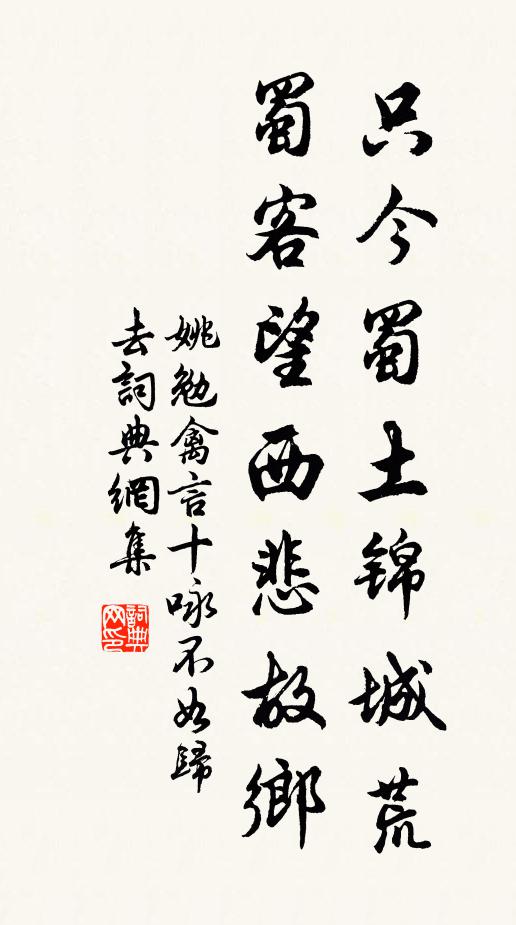 只今蜀土錦城荒
蜀客望西悲故鄉
姚勉禽言十咏不如歸
去詞典網集
詞典网印